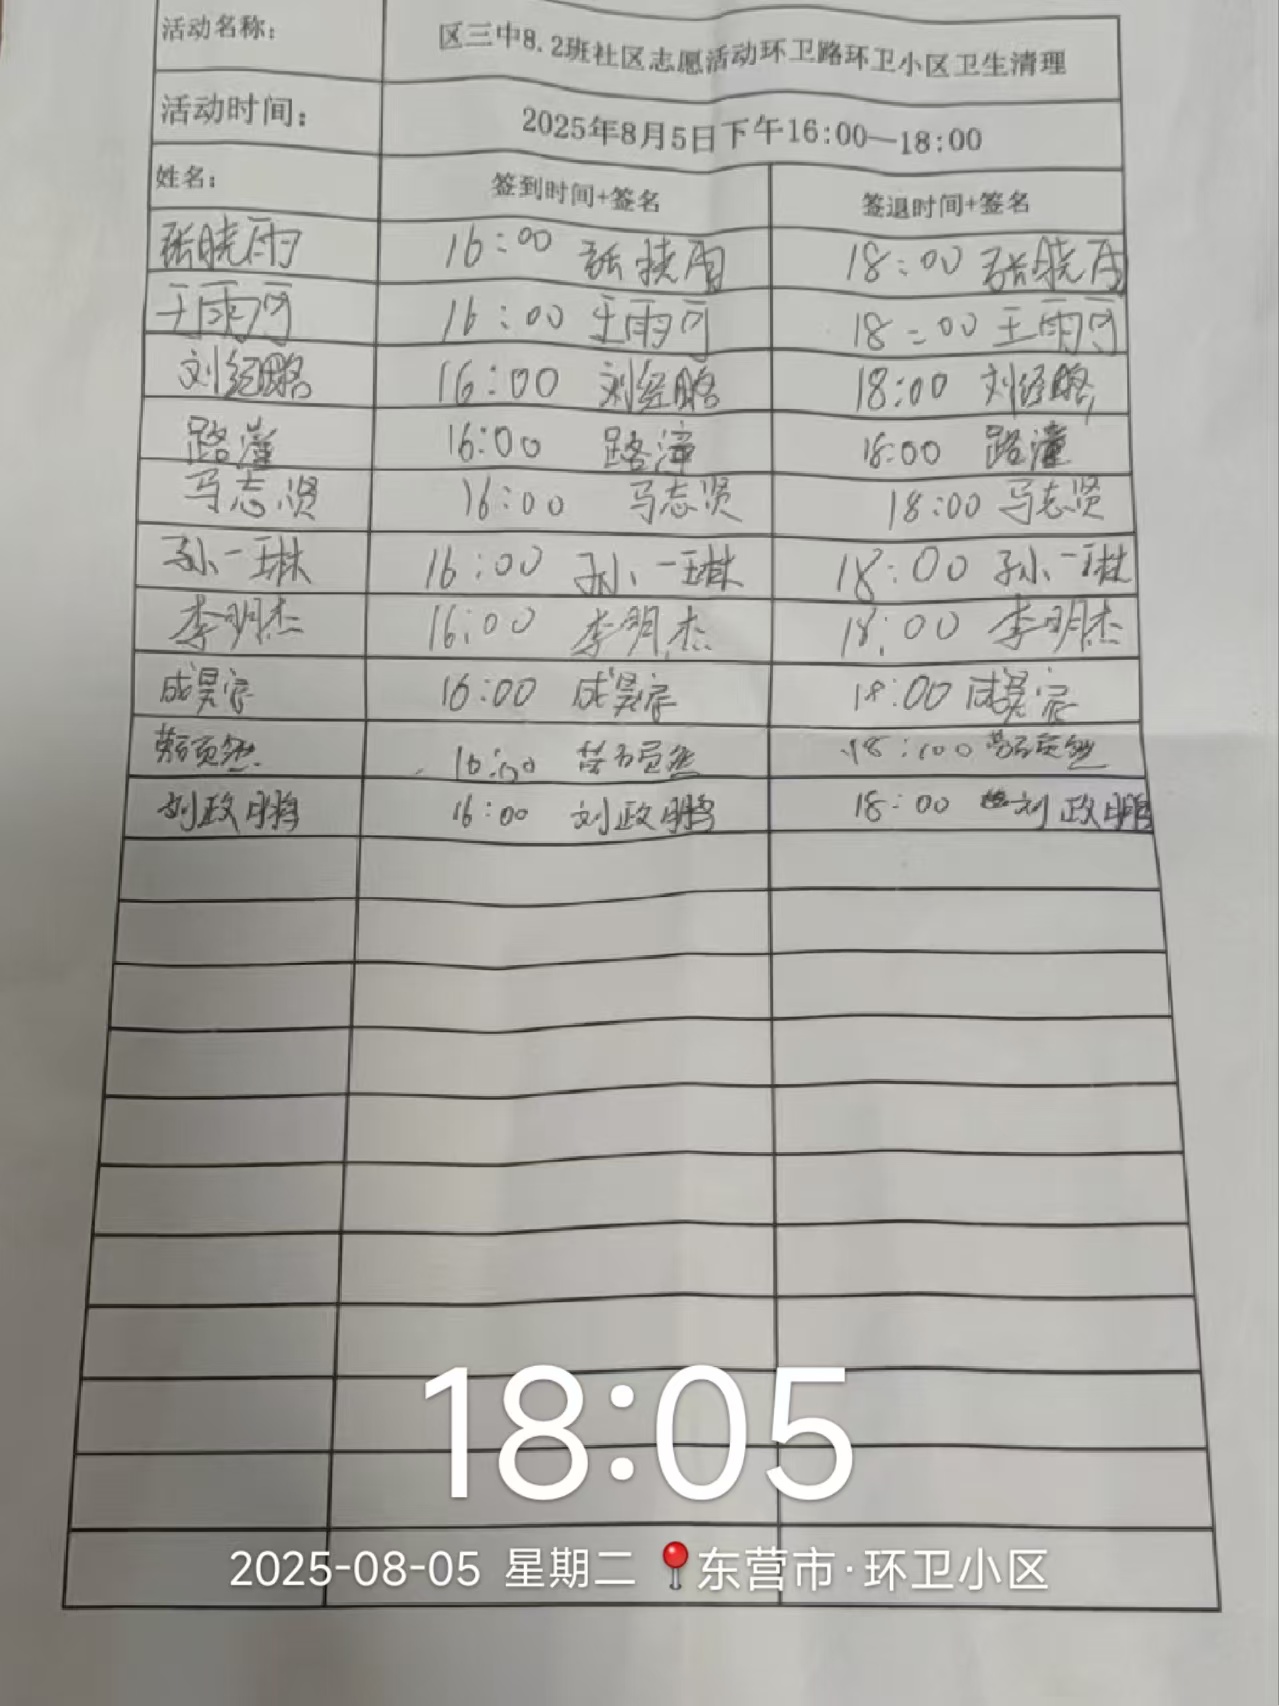 活动名称： 区三中8.2班社区志愿活动环卫路环卫小区卫生清理
活动时间： 2025年8月5日下午16:00—18:00
姓名： 签到时间+签名 签退时间+签名
张晓雨 16:00 张晓雨 18:00 张晓雨
王雨可 16:00 王雨可 18:00 王雨可
刘经略 16:00 刘经略 18:00 刘经略
路潼 16:00 路潼 18:00 路潼
马志贤 16:00 马志贤 18:00 马志贤
孙一琳 16:00 孙一琳 18:00 孙一琳
李明杰 16:00 李明杰 18:00 李明杰
成昊宸 16:00 成昊宸 18:00 成昊宸
16:00 18:00
刘政鹏 16:00 刘政鹏 18:00 刘政鹏
18:05
2025-08-05 星期二 东营市·环卫小区